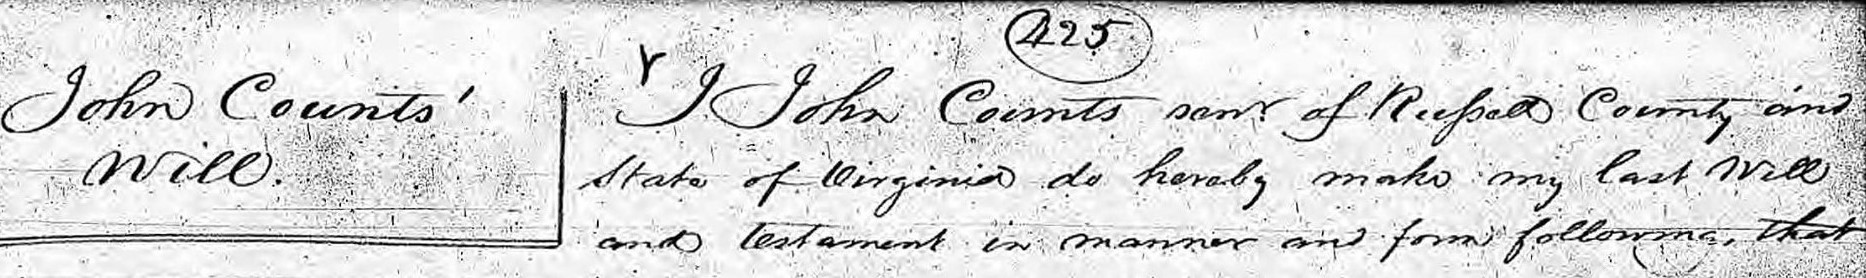 425
John Counts'
Will.
I John Counts senr of Russell County and
State of Virginia do hereby make my last Will
and testament in manner and form following, that